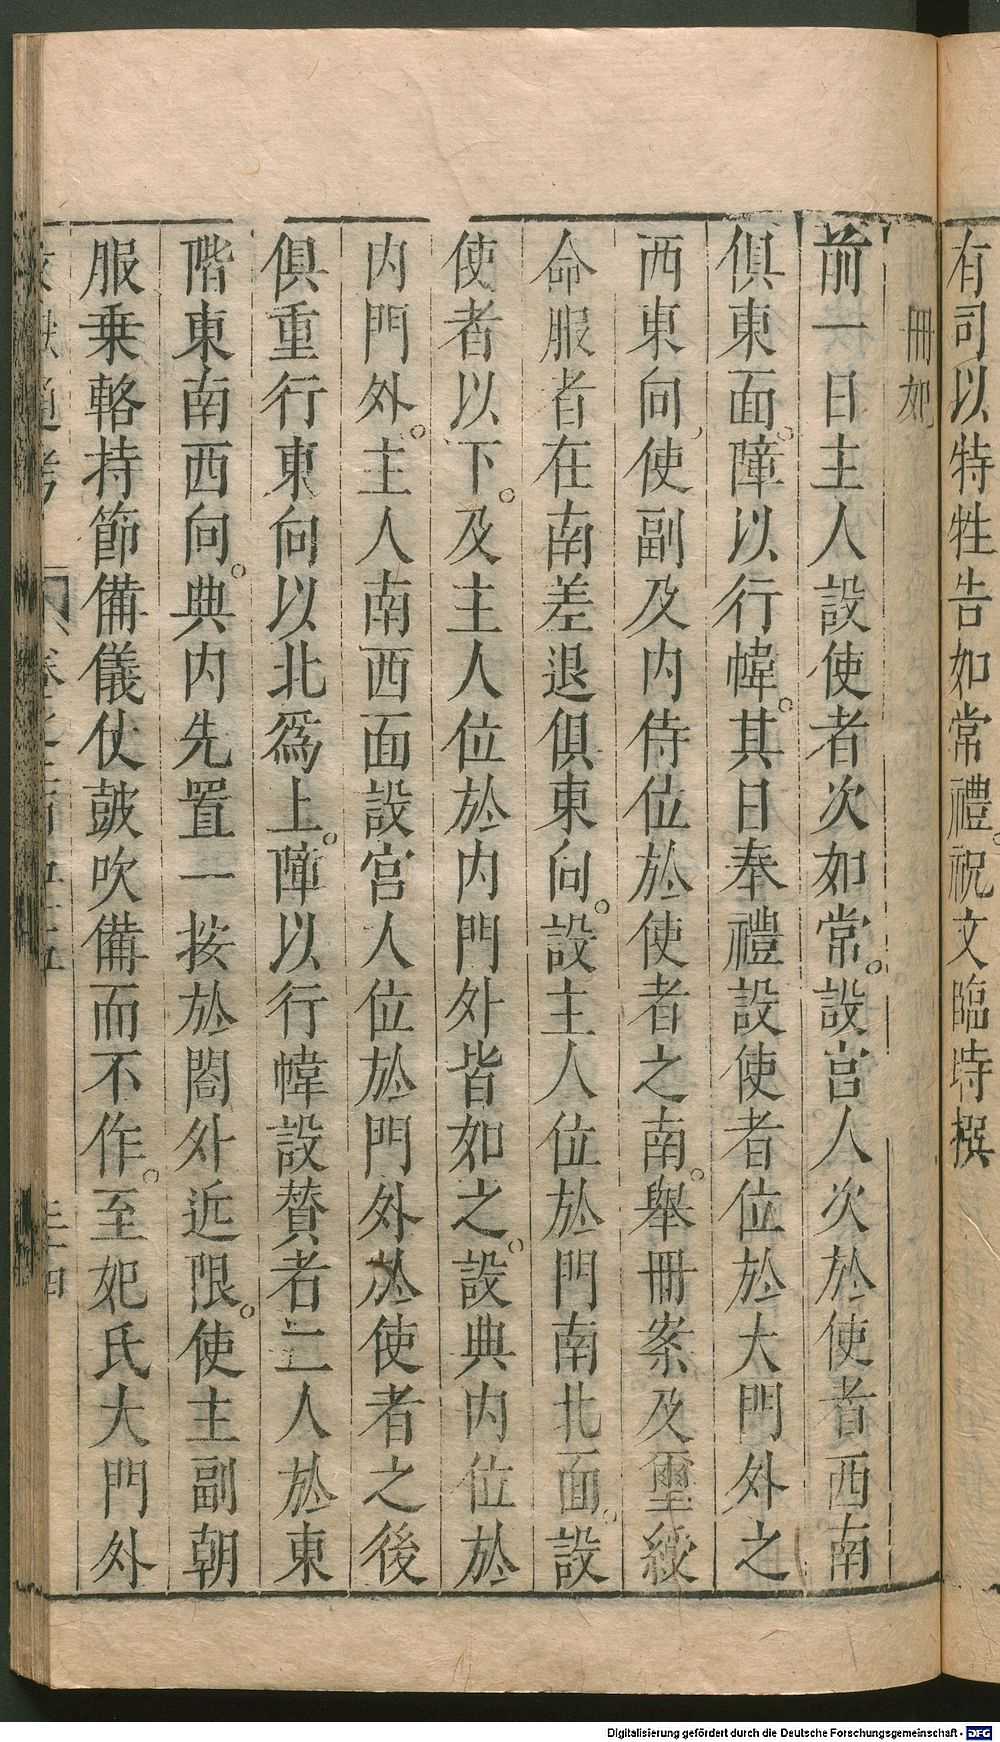 有司以特牲告如常禮。祝文臨時撰
冊妃
前一日主人設使者次如常。設宫人次於使者西南
俱東面。障以行幃。其日奉禮設使者位於大門外之
西東向使副及内侍位於使者之南。舉冊案及璽綬
命服者在南差退俱東向。設主人位於門南北面。設
使者以下。及主人位於内門外皆如之。設典内位於
内門外。主人南西面設宫人位於門外於使者之後
俱重行東向以北爲上。障以行幃設賛者二人於東
階東南西向。典内先置一按於閤外近限。使主副朝
服乗輅持節備儀仗皷吹備而不作。至妃氏大門外
Digitalisierung gefördert durch die Deutsche Forschungsgemeinschaft - DFG